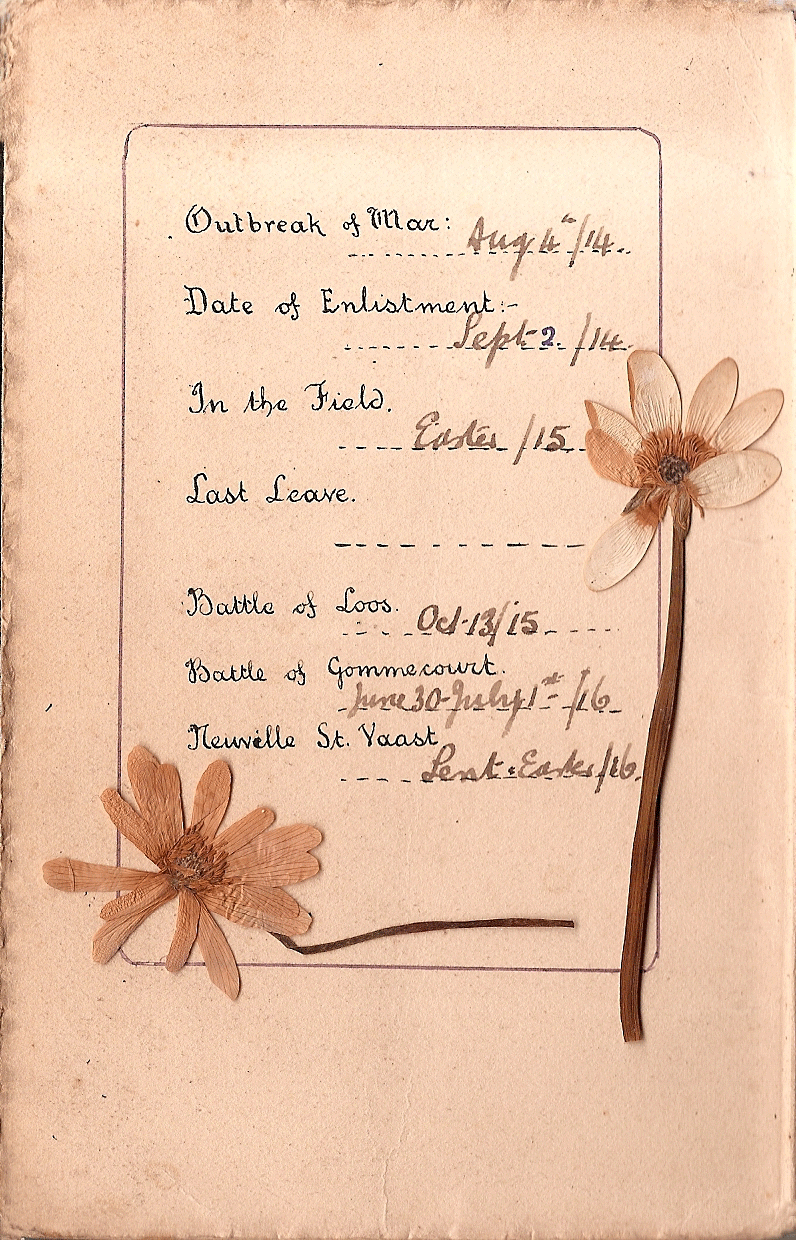 Outbreak of War:
Aug 4th/14.
Date of Enlistment:-
Sept 2. /14.
In the Field.
Easter /15
Last Leave.
Battle of Loos.
Oct-13/15
Battle of Gommecourt.
June 30-July 1st /16
Neuville St. Vaast
Lent-Easter/16.